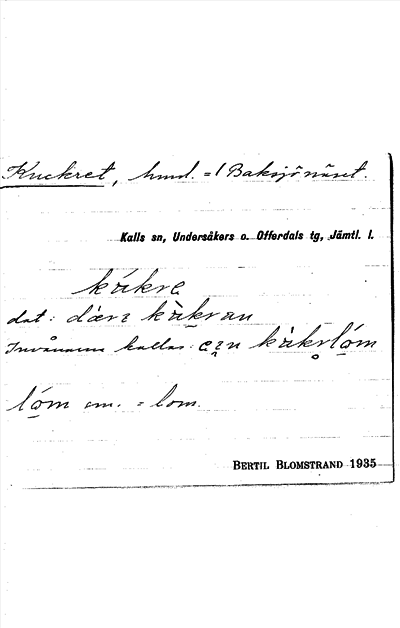 Kuckret, hmd. = / Baksjönäset.
Kalls sn, Undersåkers o. Offerdals tg, Jämtl. l.
kúkre
dat: dærı kùkran
Invånarna kallas: kùkrlóm
lóm m. = lom.
BERTIL BLOMSTRAND 1935